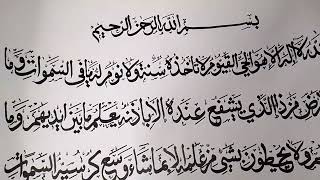 بسم الله الرحمن الرحيم
الله لا إله إلا هو الحي القيوم لا تأخذه سنة ولا نوم له ما في السموات وما
الأرض من ذا الذي يشفع عنده إلا بإذنه يعلم ما بين أيديهم وما
ولا يحيطون بشيء من علمه إلا بما شاء وسع كرسيه السموات